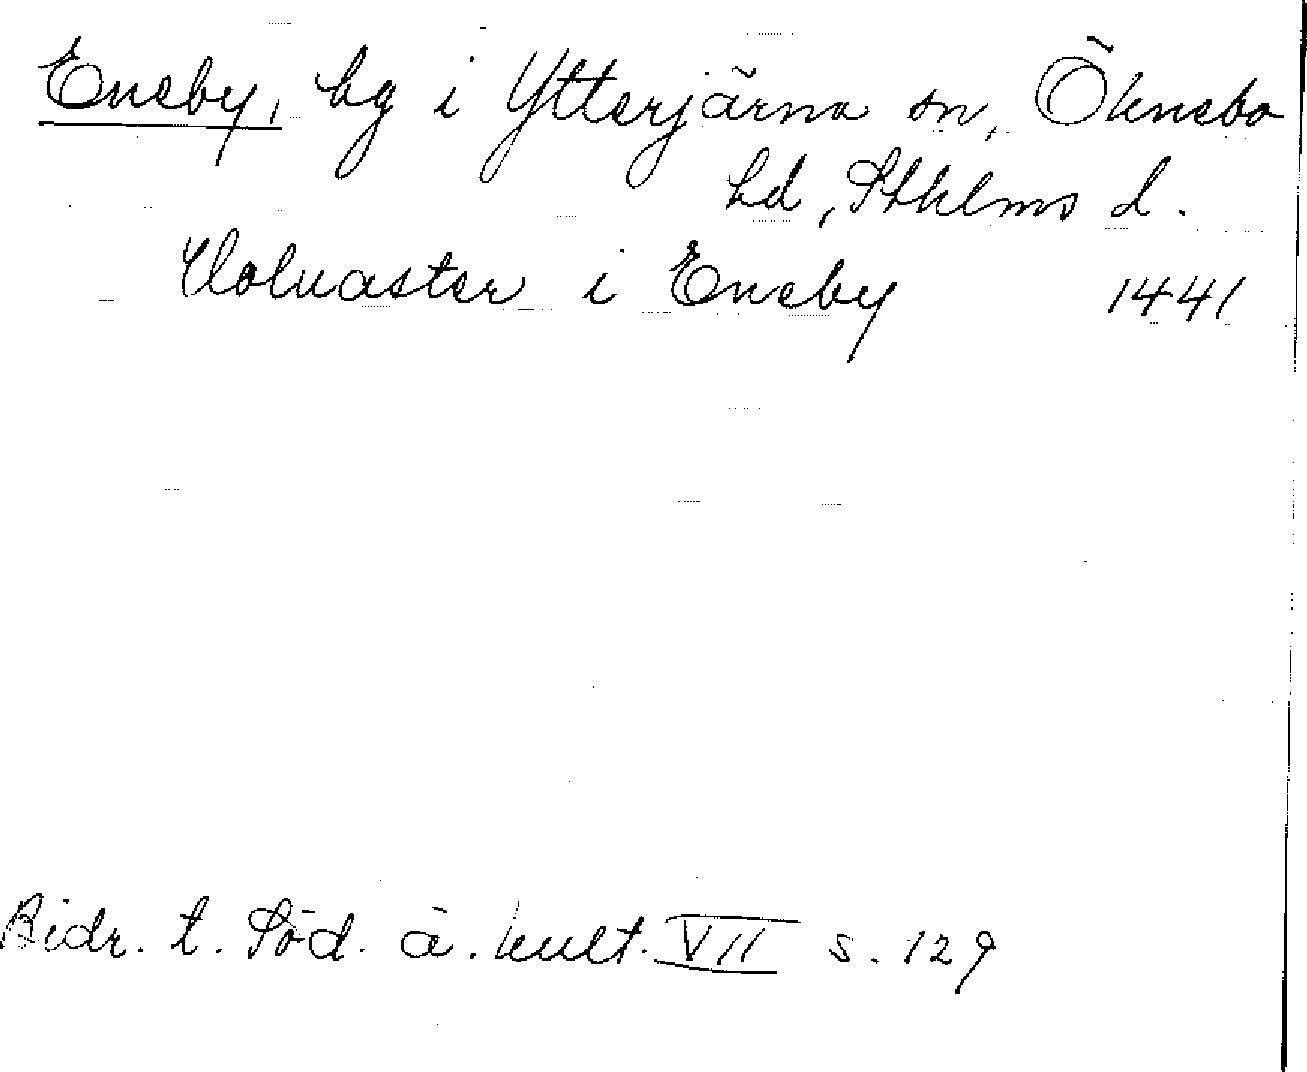 Eneby, by i Ytterjärna sn, Öknebo
hd, Sthlms l.
Holuaster i Eneby 1441
Bidr. t. Söd. ä. kult. VII s. 129